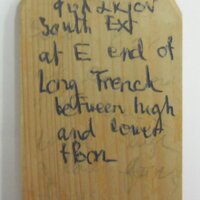 South Ext
at E end of
Long Trench
between high
and lower